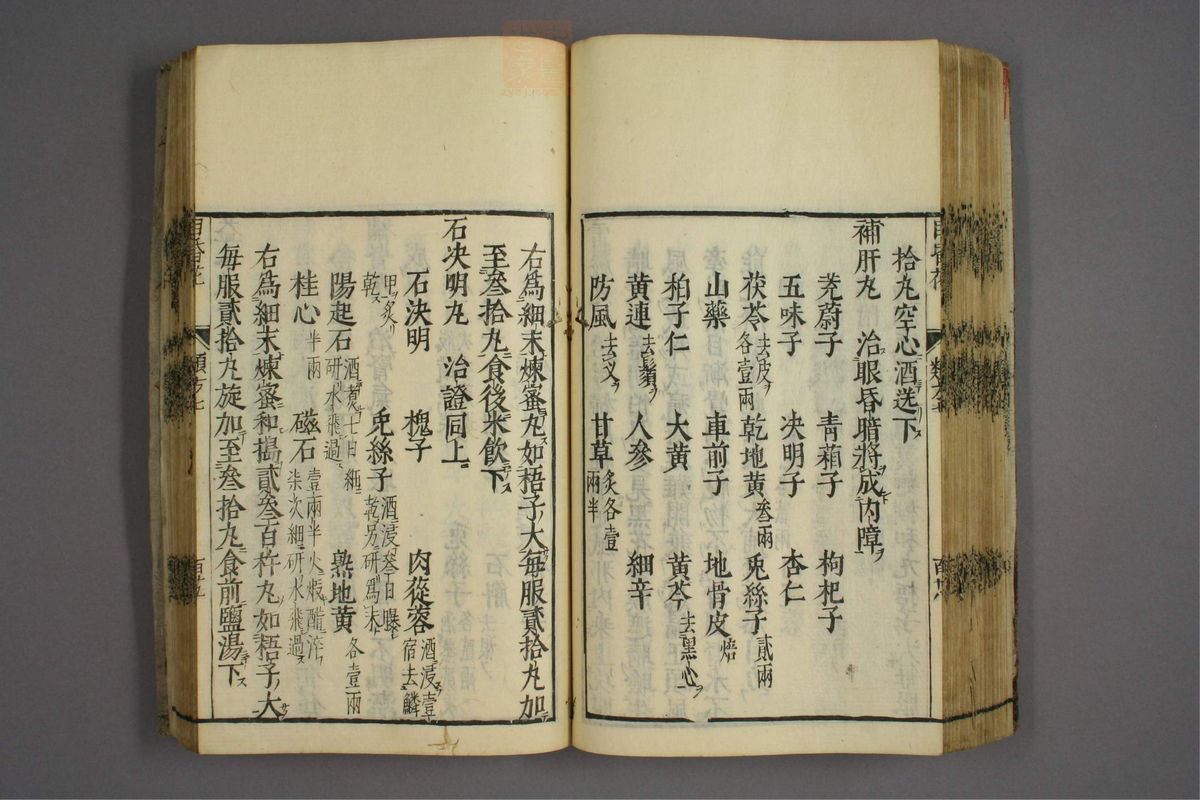 拾丸空心酒送下
補肝丸 治眼昏暗將成內障
茺蔚子 青葙子 枸杞子
五味子 决明子 杏仁
茯苓去皮各壹兩 乾地黄叁兩 兎絲子貳兩
山藥 車前子 地骨皮焙
栢子仁 大黄 黄芩去黑心
黄連去鬚 人參 細辛
防風去叉 甘草炙各壹兩半
右爲細末煉蜜丸如梧子大每服貳拾丸加
至叁拾丸食後米飲下
石决明丸 治證同上
石決明 槐子 肉蓯蓉酒浸壹宿去鱗
甲炙乾
陽起石酒煮七日研水飛過 兎絲子酒浸叁日曝乾另研爲末 熟地黄各壹兩
桂心半兩 磁石壹兩半火煅醋淬柒次細研水飛過
右爲細末煉蜜和搗貳叁百杵丸如梧子大
每服貳拾丸旋加至叁拾丸食前鹽湯下